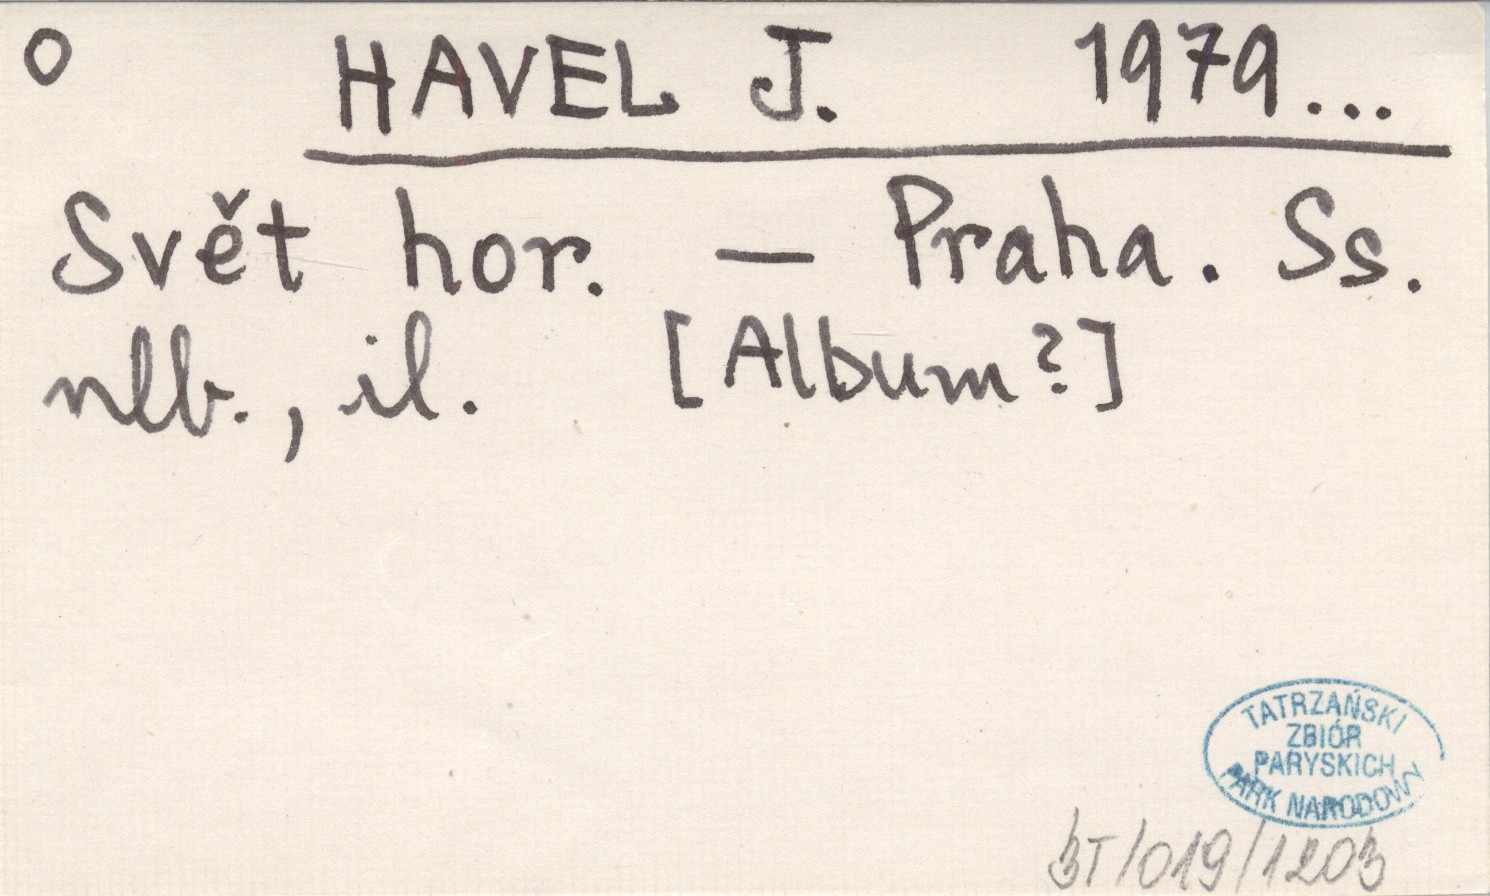 O HAVEL J. 1979...
Svět hor. — Praha. Ss.
nlb., il. [Album?]
TATRZAŃSKI
ZBIÓR
PARYSKICH
PARK NARODOWY
3T/019/1203